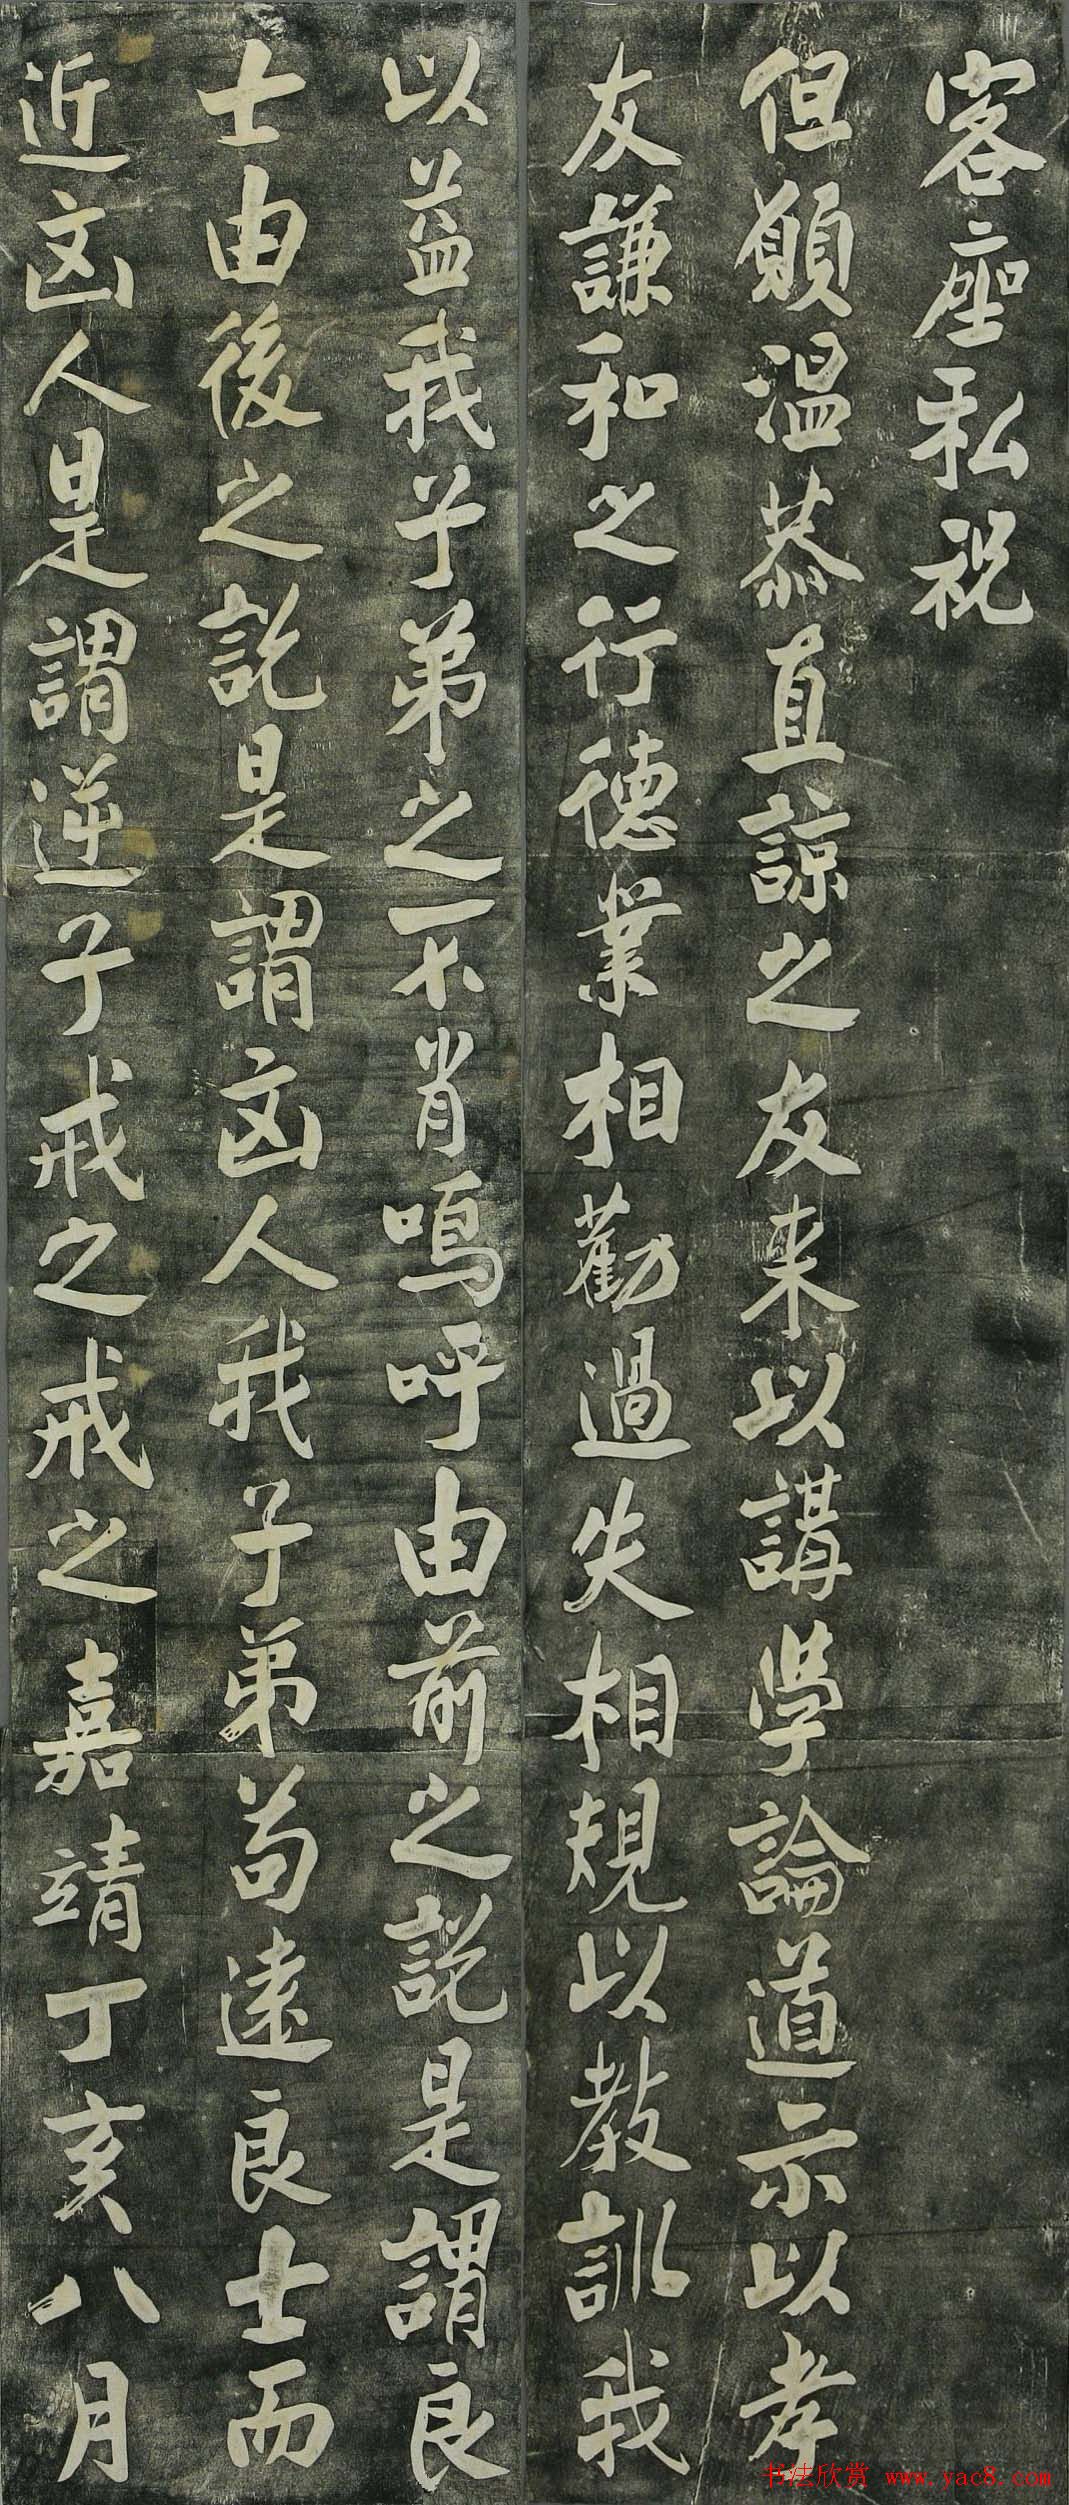 客座私祝
但願温恭直諒之友来以講学論道示以孝
友謙和之行德業相勸過失相規以教訓我
以益我子弟之不肖嗚呼由前之説是謂良
士由後之説是謂凶人我子弟苟遠良士而
近凶人是謂逆子戒之戒之嘉靖丁亥八月
书法欣赏 www.yac8.com